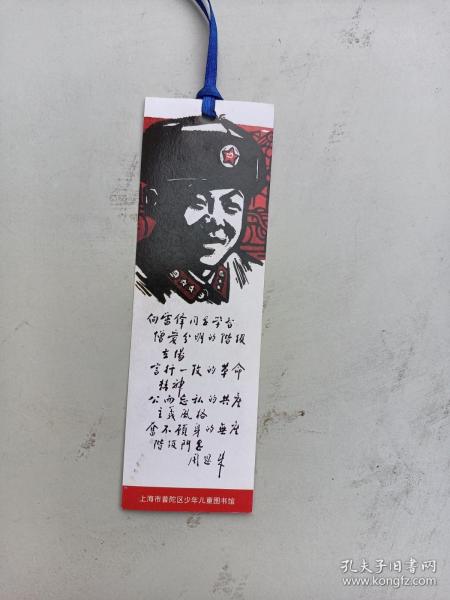 向雷锋同志学習
憎爱分明的阶级
立場
言行一致的革命
精神
公而忘私的共产
主義風格
奮不顧身的無産
阶级鬥志
周恩来
上海市普陀区少年儿童图书馆
孔夫子旧书网
www.kongfz.com